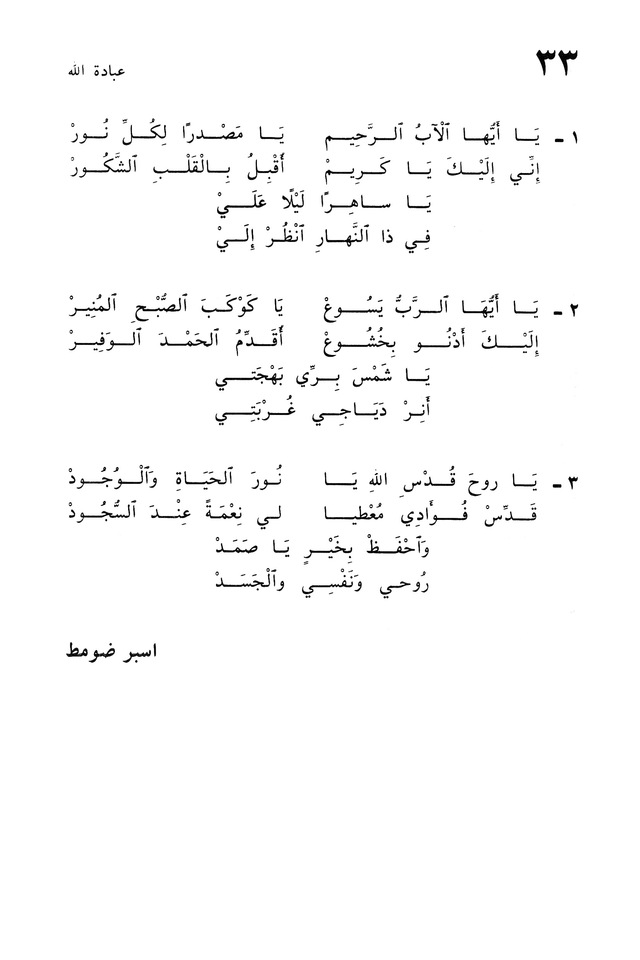 ٣٣
عبادة الله
١ ـ يَـا أَيُّهـا ٱلْآبُ ٱلـرَّحِيـمِ يَـا مَصْـدرًا لِكُـلِّ نُـورْ
إِنِّي إِلَيْـكَ يَـا كَـرِيـمْ أَقْبِـلُ بِـالْقَلْـبِ ٱلشَّكُورْ
يَـا سـاهِـرًا لَيْلًا عَلَـيْ
فِي ذا النَّهـارِ ٱنْظُرْ إِلَيْ
٢ ـ يَـا أَيُّهَـا الـرَّبُّ يَسُـوعْ يَا كَوْكَـبَ ٱلصُّبْـحِ ٱلمُنِيـرْ
إِلَيْـكَ أَدْنُـو بِخُشُـوعْ أُقَـدِّمُ ٱلحَمْـدَ ٱلـوَفِيـرْ
يَـا شَمْسَ بِـرِّي بَهْجَتـي
أَنِرْ دَيَـاجِـي غُـرْبَتِـي
٣ ـ يَـا روحَ قُـدْسِ اللهِ يَـا نُـورَ ٱلحَيَـاةِ وَٱلْـوُجُـودْ
قَـدِّسْ فُـوَادِي مُعْطِيـا لي نِعْمَةً عِنْـدَ السُّجُـودْ
وَٱحْفَـظْ بِخَيْـرٍ يَـا صَمَدْ
رُوحي وَنَفْسِـي وٱلْجَسَـدْ
اسبر ضومط